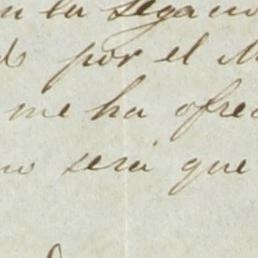 en la Segund
por el M
me ha ofrec
será que